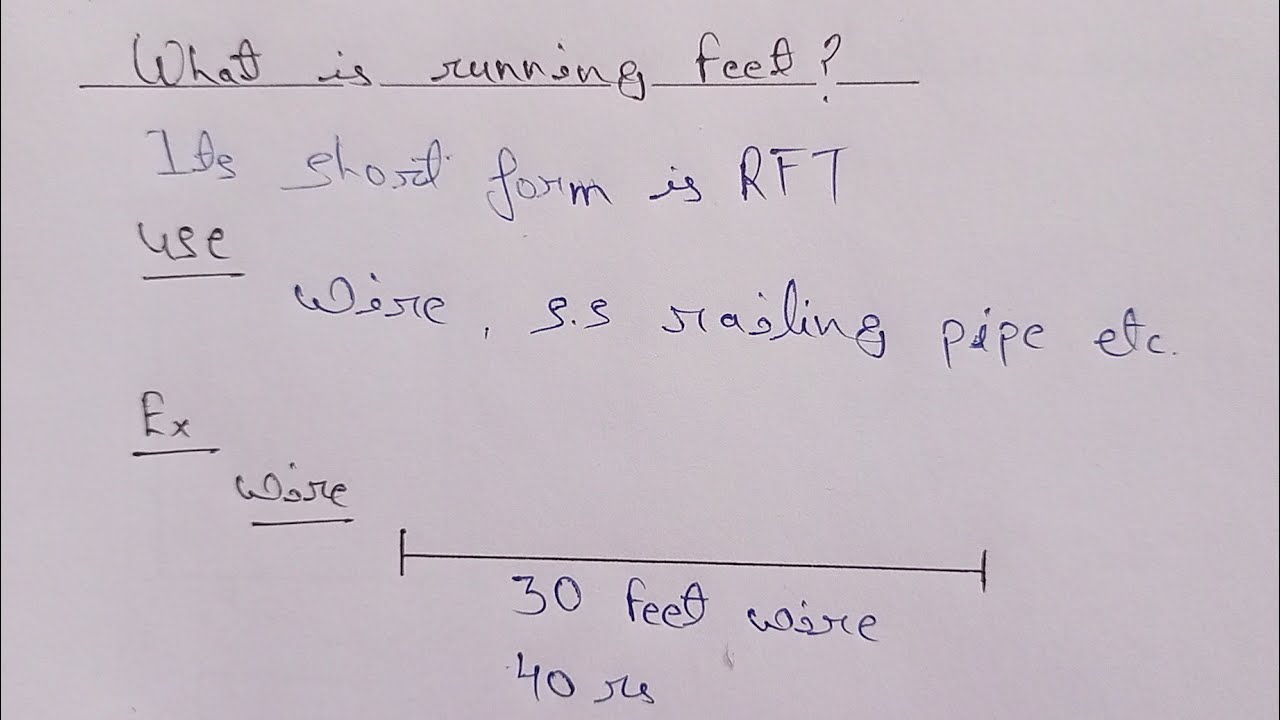 What is running feet?
Its short form is RFT
use
Wire, s.s railing pipe etc.
Ex
wire
30 feet wire
40 rs